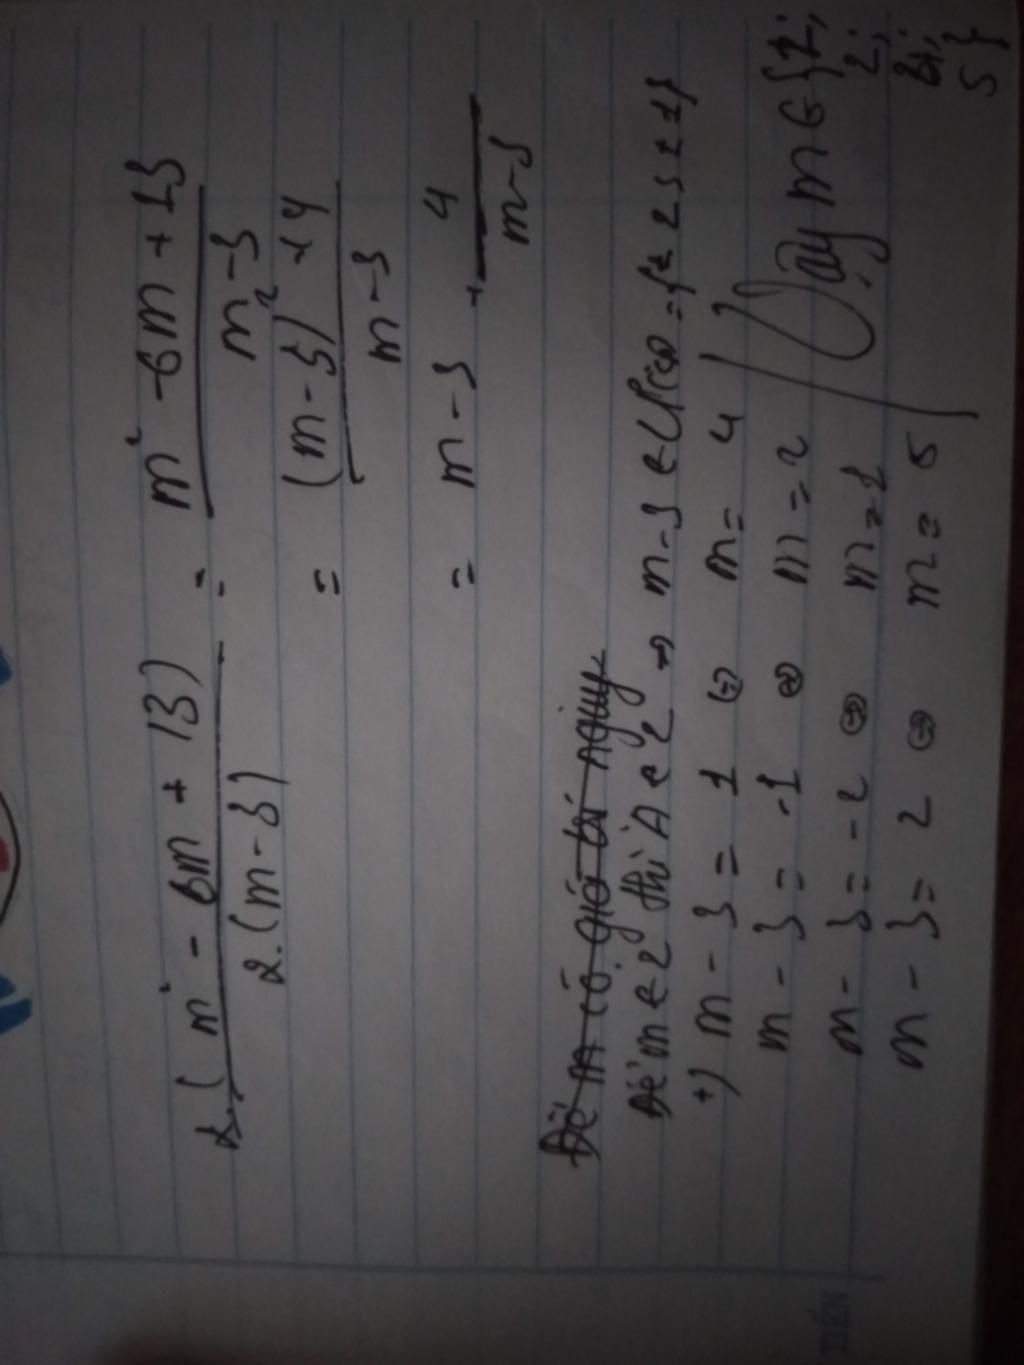 2.(m² - 6m + 13) = m² - 6m + 13
2.(m - 3) m - 3
= (m - 3)² + 4
m - 3
= m - 3 + 4
m - 3
Để m có giá trị nguyên
Để m ∈ Z thì A ∈ Z ⇒ m - 3 ∈ Ư = {± 2; ± 1}
+) m - 3 = 1 ⇔ m = 4
m - 3 = -1 ⇔ m = 2
m - 3 = -2 ⇔ m = 1
m - 3 = 2 ⇔ m = 5
Vậy m ∈ {1;
2;
4;
5}
TIẾN